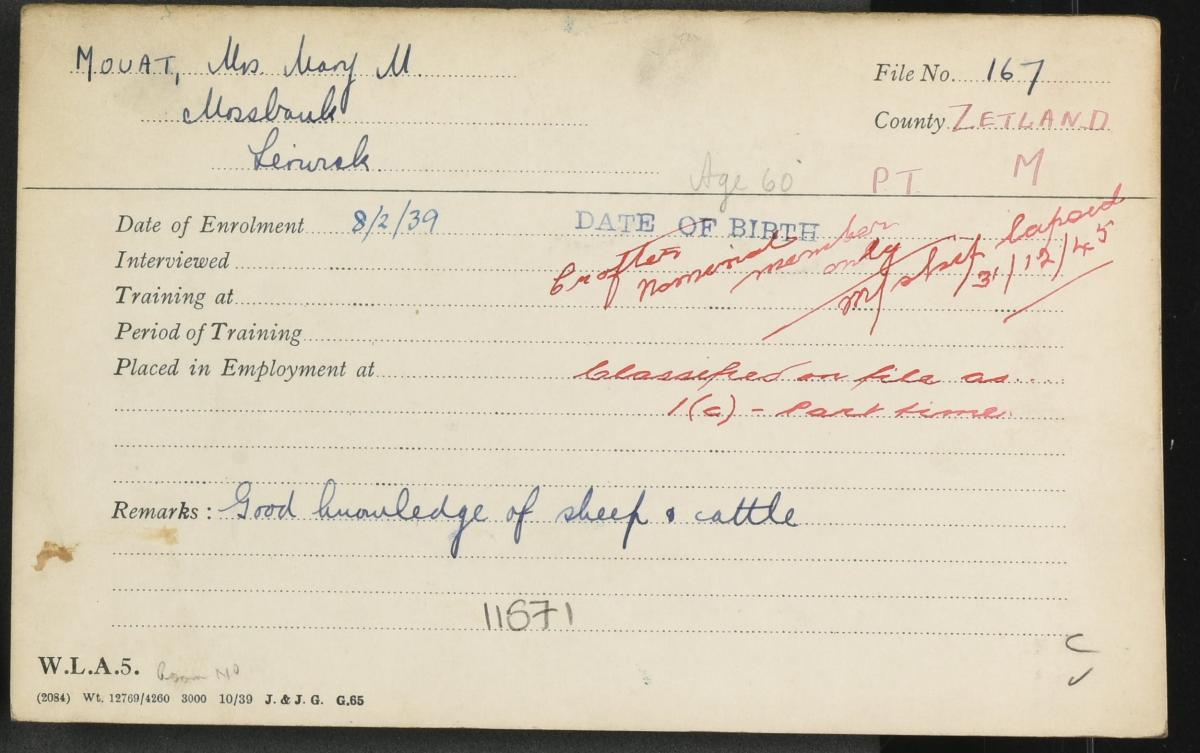 MOUAT, Mrs Mary M.
Mossbank
Lerwick.
File No. 167
County ZETLAND
Age 60 P.T. M
Date of Enrolment 8/2/39 DATE OF BIRTH
Crofter
Nominal member only
M/ship lapsed 31/12/45
Interviewed
Training at
Period of Training
Placed in Employment at
Classified on file as
1(c) - Part time.
Remarks : Good knowledge of sheep & cattle
11671
W.L.A.5.
(2084) Wt. 12769/4260 3000 10/39 J. & J. G. G.65